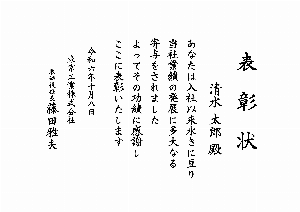 表彰状
清水太郎殿
あなたは入社以来永きに亘り
当社業績の発展に多大なる
寄与をされました
よってその功績に感謝し
ここに表彰いたします
令和六年十月八日
株式会社
代表取締役社長 藤田雅夫